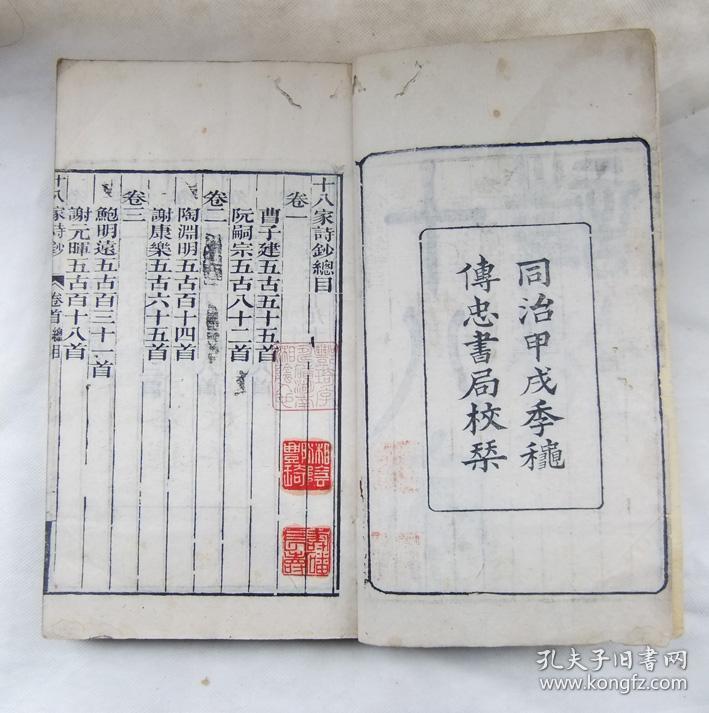 同治甲戌季龝
傳忠書局校栞
十八家詩鈔總目
卷一
曹子建五古五十五首
阮嗣宗五古八十二首
卷二
陶淵明五古百十四首
謝康樂五古六十五首
卷三
鮑明遠五古百三十一首
謝元暉五古百十八首
十八家詩鈔 卷首 總目
湘陰
孔夫子旧书网
www.kongfz.com